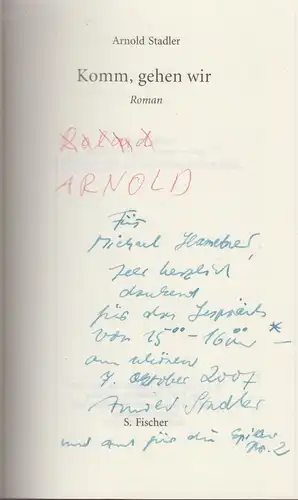 Arnold Stadler
Komm, gehen wir
Roman
Roland
ARNOLD
Für
Michael
sehr herzlich
dankend
für das Gespräch
von 15⁰⁰–16 *
am schönen
7. Oktober 2007
Arnold Stadler
S. Fischer
und auf für die
No. 2